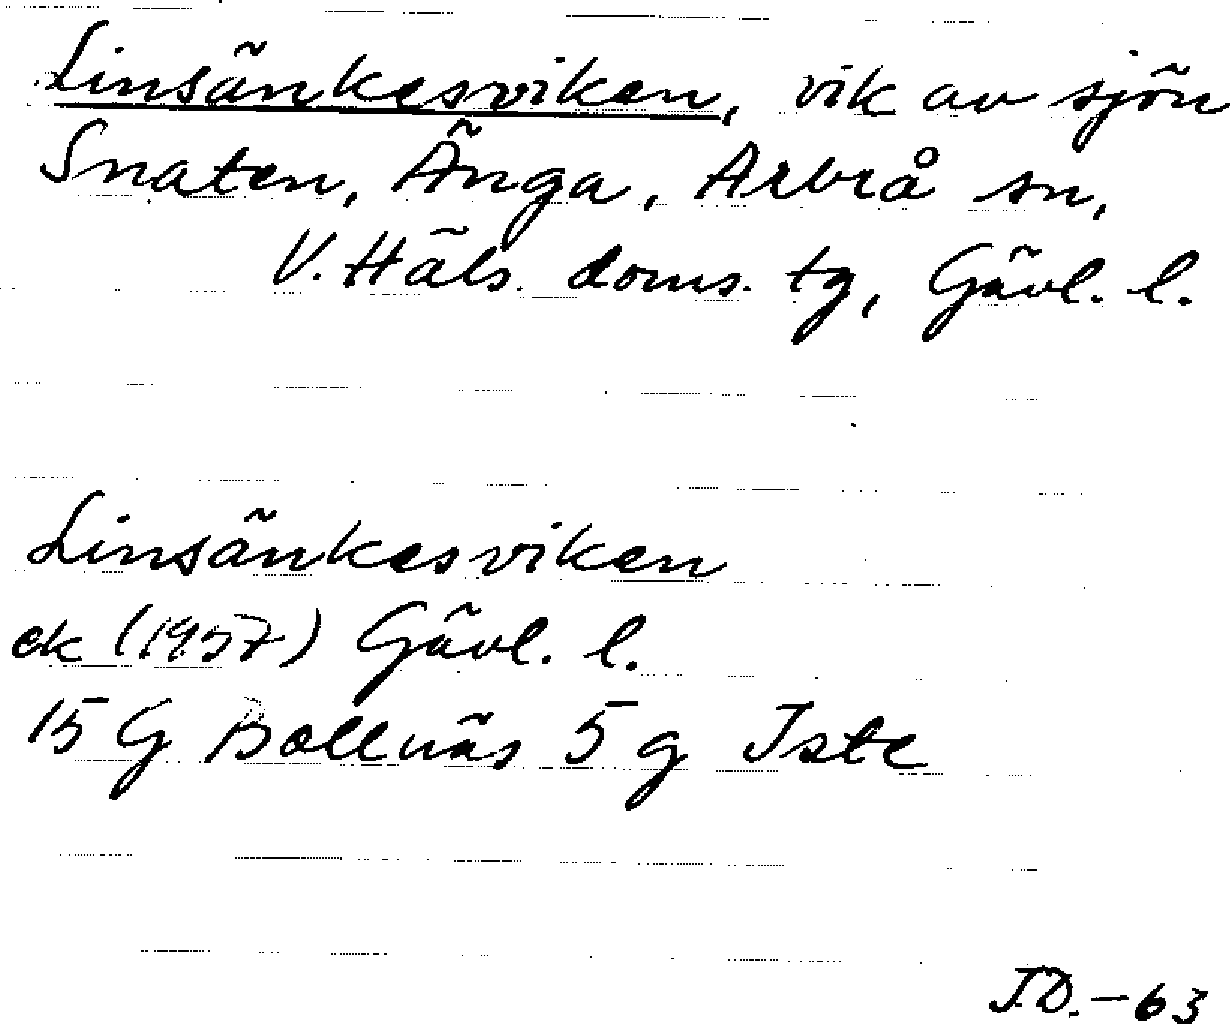 Linsänkesviken, vik av sjön
Snaten, Änga, Arbrå sn,
V. Häls. doms. tg, Gävl. l.
Linsänkesviken
ek (1957) Gävl. l.
15 G Bollnäs 5 g Iste
J.D. - 63